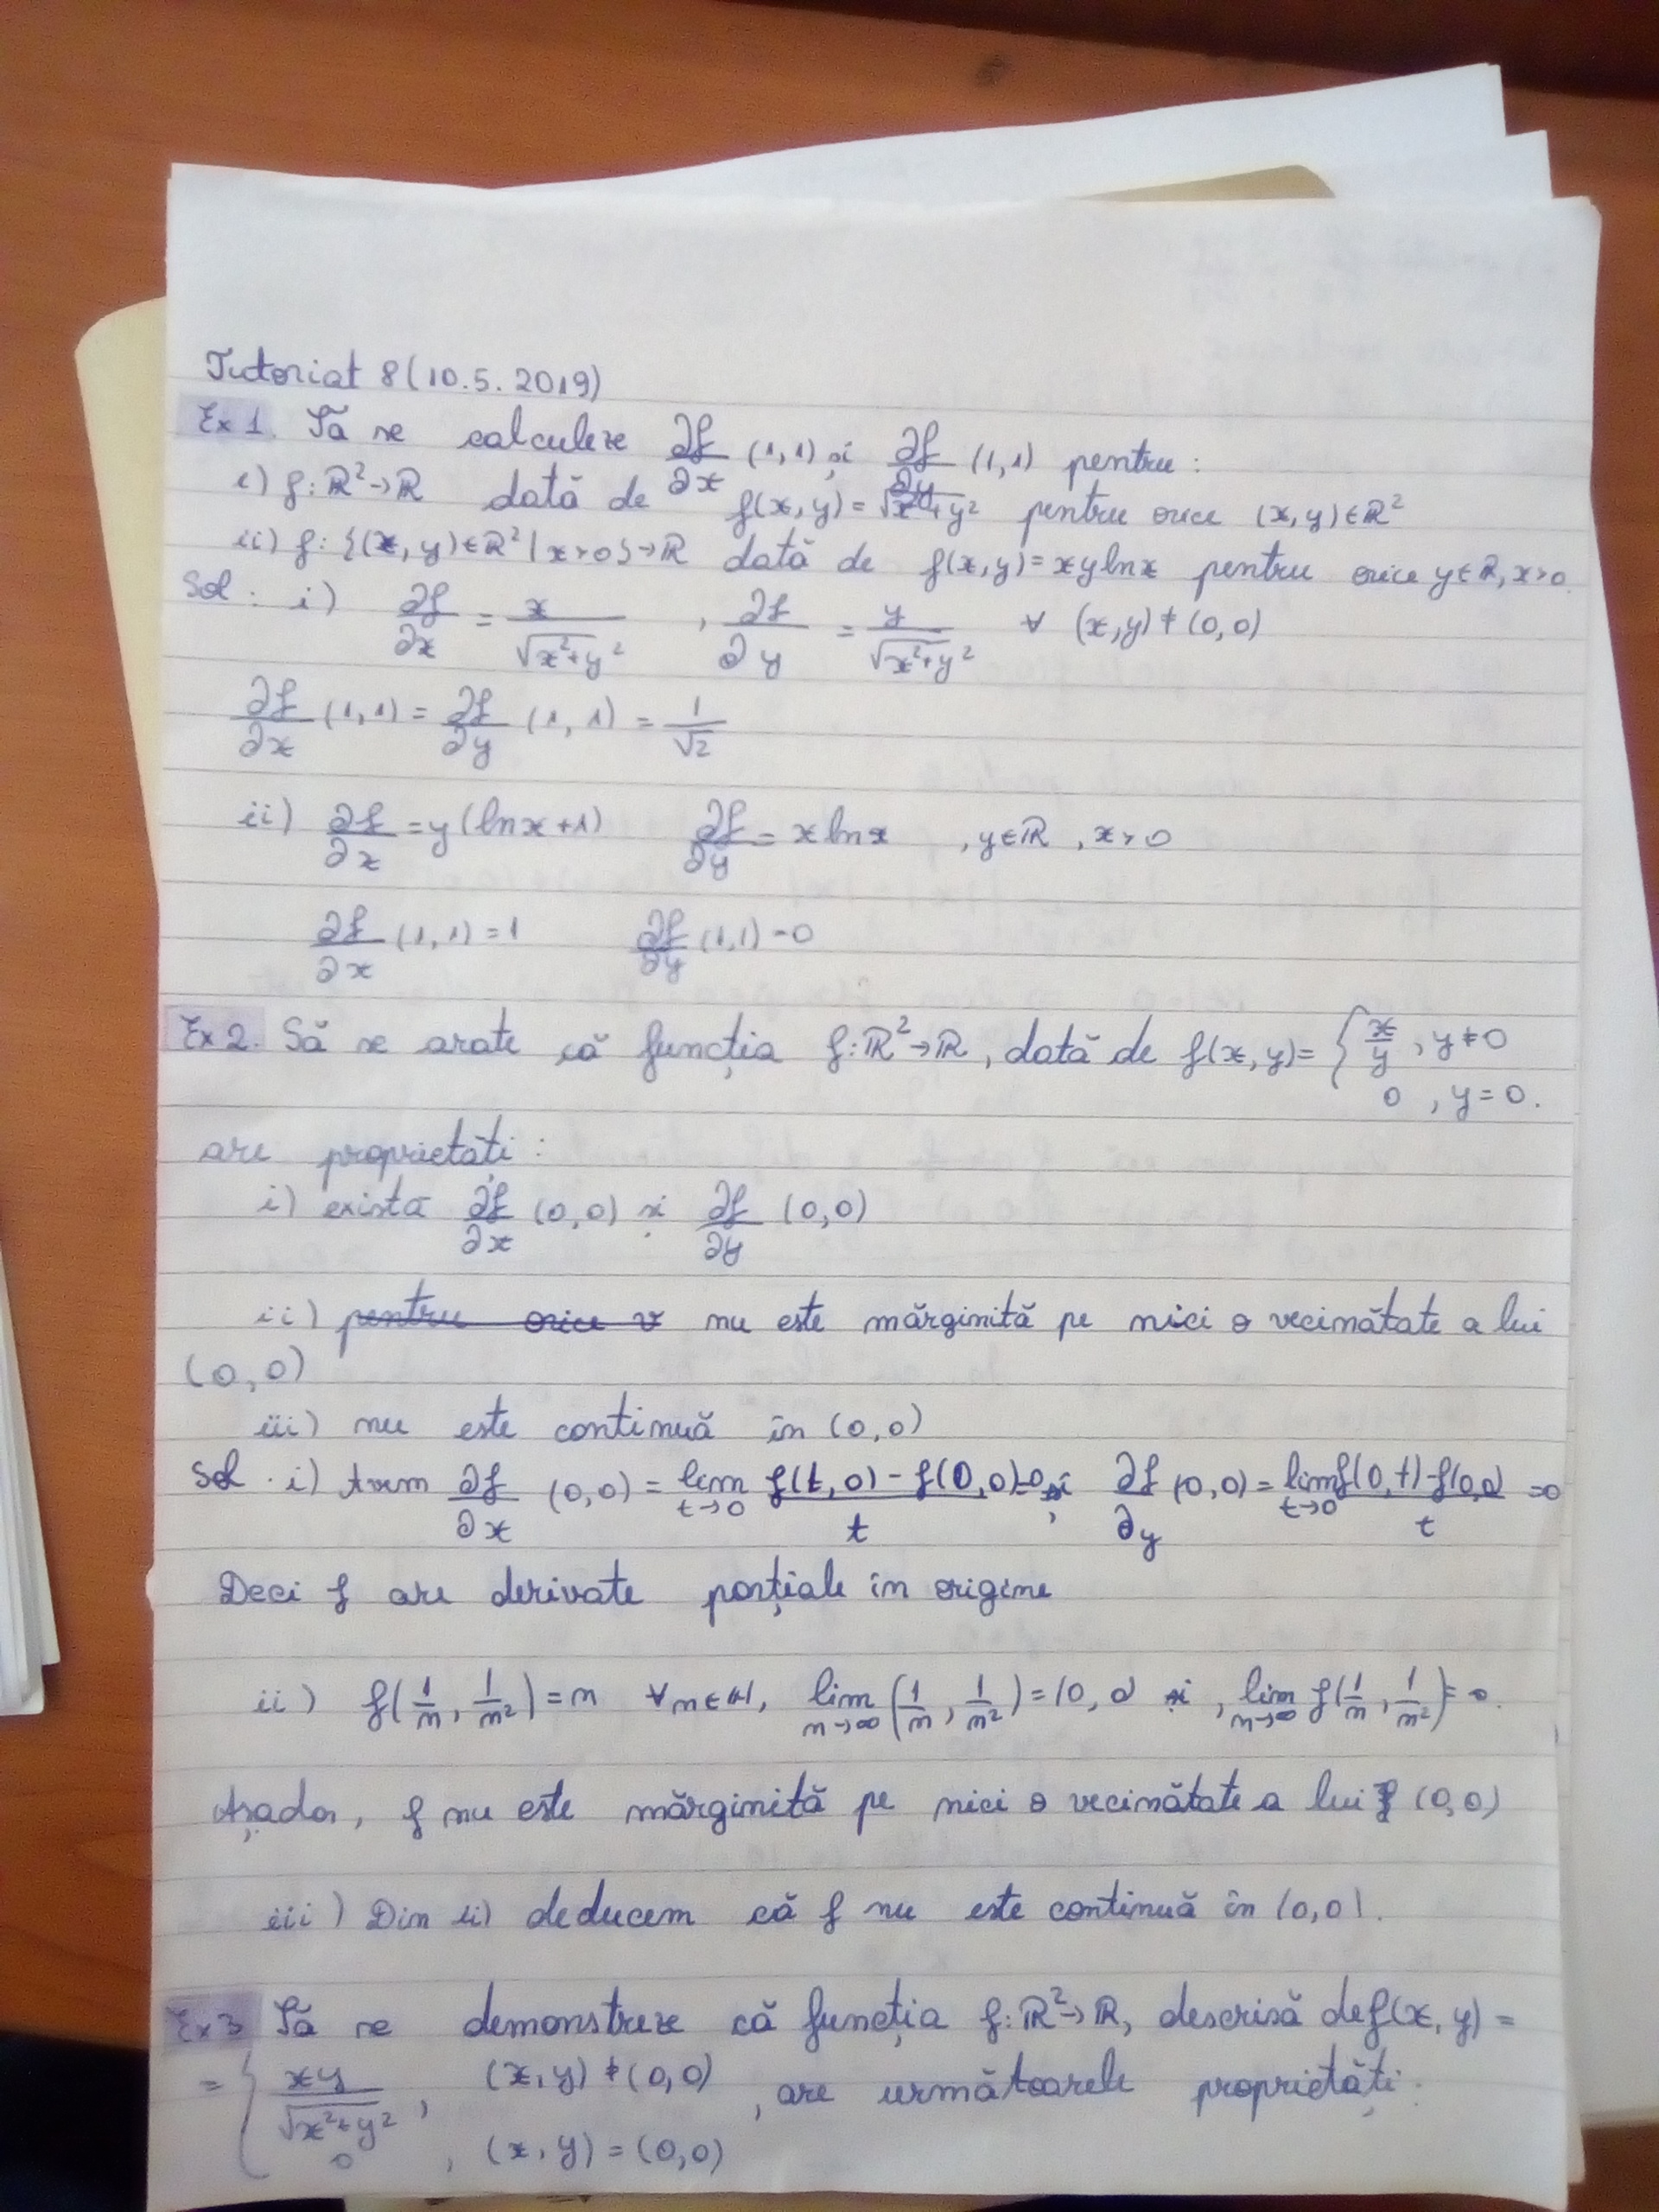 Tutoriat 8 (10.5.2019)
Ex 1. Să se calculeze ∂f/∂x (1,1) și ∂f/∂y (1,1) pentru :
i) f: ℝ² → ℝ dată de f(x,y) = √(x²+y²) pentru orice (x,y) ∈ ℝ²
ii) f: {(x,y) ∈ ℝ² | x>0} → ℝ dată de f(x,y) = xy ln x pentru orice y ∈ ℝ, x>0.
Sol : i) ∂f/∂x = x/√(x²+y²) , ∂f/∂y = y/√(x²+y²) ∀ (x,y) ≠ (0,0)
∂f/∂x (1,1) = ∂f/∂y (1,1) = 1/√2
ii) ∂f/∂x = y(ln x + 1) ∂f/∂y = x ln x , y ∈ ℝ , x>0
∂f/∂x (1,1) = 1 ∂f/∂y (1,1) = 0
Ex 2. Să se arate că funcția f: ℝ² → ℝ, dată de f(x,y) = { x/y , y ≠ 0
0 , y = 0.
are proprietăți :
i) există ∂f/∂x (0,0) și ∂f/∂y (0,0)
ii) pentru orice v nu este mărginită pe nici o vecinătate a lui
(0,0)
iii) nu este continuă în (0,0)
Sol . i) Avem ∂f/∂x (0,0) = lim t→0 (f(t,0) - f(0,0))/t = 0 și ∂f/∂y (0,0) = lim t→0 (f(0,t) - f(0,0))/t = 0
Deci f are derivate porțiale în origine
ii) f(1/n, 1/n²) = n ∀ n ∈ ℕ, lim n→∞ (1/n, 1/n²) = (0,0) și , lim n→∞ f(1/n, 1/n²) = ∞.
Așadar, f nu este mărginită pe nici o vecinătate a lui (0,0)
iii) Din ii) deducem că f nu este continuă în (0,0).
Ex 3 Să se demonstreze că funcția f: ℝ² → ℝ, descrisă de f(x,y) =
= { xy/√(x²+y²) , (x,y) ≠ (0,0) , are următoarele proprietăți :
0 , (x,y) = (0,0)